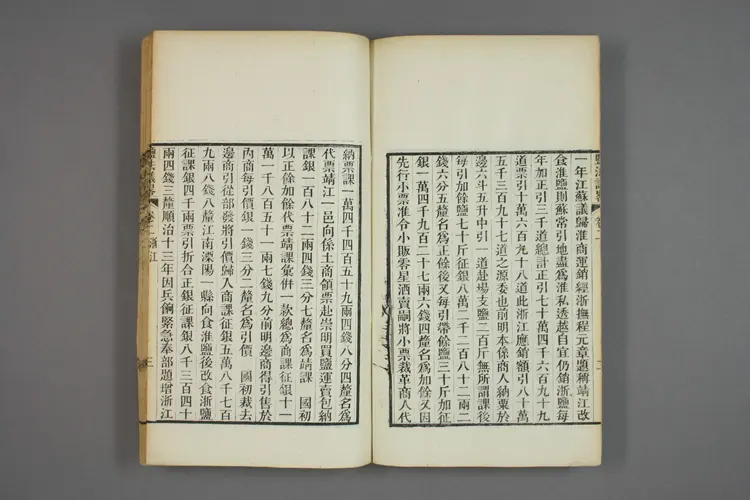 一年江蘇議歸淮商運銷經浙撫程元章題稱靖江改
食淮鹽則蘇常引地盡爲淮私透越自宜仍銷浙鹽每
年加正引三千道總計正引七十萬四千六百九十九
道票引十萬六百九十八道此浙江應銷額引八十萬
五千三百九十七道之源委也前明本係商人納粟於
邊六斗五升中引一道赴場支鹽二百斤無所謂課後
每引加餘鹽七十斤征銀八萬二千二百八十二兩二
錢六分五釐名爲正餘後又每引帶餘鹽三十斤加征
銀一萬四千九百二十七兩六錢四釐名爲加餘又因
先行小票准令小販零星酒賣嗣將小票裁革商人代
納票課一萬四千四百五十九兩四錢八分四釐名爲
代票靖江一邑向係土商領票赴崇明買鹽運賣包納
課銀一百八十二兩四錢三分七釐名爲靖課　國初
以正餘加餘代票靖課彙併一款總爲商課征銀十一
萬一千八百五十一兩七錢九分前明邊商得引售於
內商每引價銀一錢三分二釐名爲引價　國初裁去
邊商引從部發將引價歸人商課征銀五萬八千七百
九兩八錢八釐江南溧陽一縣向食淮鹽後改食浙鹽
征課銀四千兩票引折合正銀征課銀八千三百四十
兩四錢三釐順治十三年因兵餉緊急奉部題增浙江
卷二浙江
三